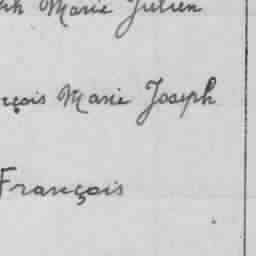 ph Marie Julien
nçois Marie Joseph
François